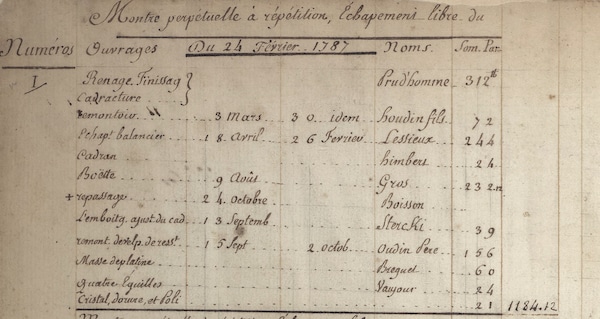 Montre perpétuelle à répétition, Echapement libre du
Numéros Ouvrages Du 24 Février 1787 Noms. Som. Par.
1 Ronage, Finissag } Prud'homme 312 tt
Cadracture }
remontoir 3 Mars 30 idem houdin fils 72
Echapt balancier 18 avril 26 Fevrier Lessieux 244
Cadran himbert 24
Boëtte 9 Août Gros 232
+ repassage 24 octobre Boisson
L'emboitg. ajust du cad 13 Septemb Stercki 39
15 Sept 2 octob Oudin Pere 156
Masse deplatine Breguet 60
quatre Eguilles Vaujour 24
Cristal, dorure, et Poli 21 1184.12